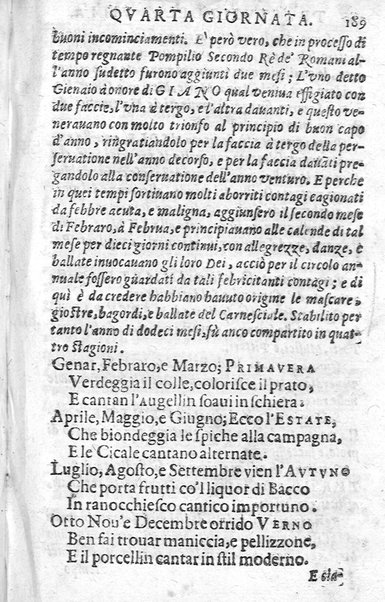 QVARTA GIORNATA. 189
buoni incominciamenti. E' però vero, che in processo di
tempo regnante Pompilio Secondo Rè de' Romani al-
l'anno sudetto furono aggiunti due mesi; L'vno detto
Gienaio à onore di GIANO qual veniua effigiato con
due faccie, l'vna à tergo, e l'altra dauanti, e questo ve-
nerauano con molto trionfo al principio di buon capo
d'anno, ringratiandolo per la faccia à tergo della per-
seruatione nell'anno decorso, e per la faccia dauãti pre-
gandolo alla conseruatione dell'anno venturo. E perche
in quei tempi sortiuano molti aborriti contagi cagionati
da febbre acuta, e maligna, aggiunsero il secondo mese
di Febraro, à Februa, e principiauano alle calende di tal
mese per dieci giorni continui, con allegrezze, danze, e
ballate inuocauano gli loro Dei, acciò per il circolo an-
nuale fossero guardati da tali febricitanti contagi; e di
quì è da credere habbiano hauuto origine le mascare,
giostre, bagordi, e ballate del Carnesciale. Stabilito per
tanto l'anno di dodeci mesi, fù anco compartito in quat-
tro stagioni.
Genar, Febraro, e Marzo; PRIMAVERA
Verdeggia il colle, colorisce il prato,
E cantan l'Augellin soaui in schiera.
Aprile, Maggio, e Giugno; Ecco l'ESTATE,
Che biondeggia le spiche alla campagna,
E le Cicale cantano alternate.
Luglio, Agosto, e Settembre vien l'AVTVNO
Che porta frutti co'l liquor di Bacco
In ranocchiesco cantico importuno.
Otto Nou'e Decembre orrido VERNO
Ben fai trouar maniccia, e pellizzone,
E il porcellin cantar in stil moderno.
E sta-